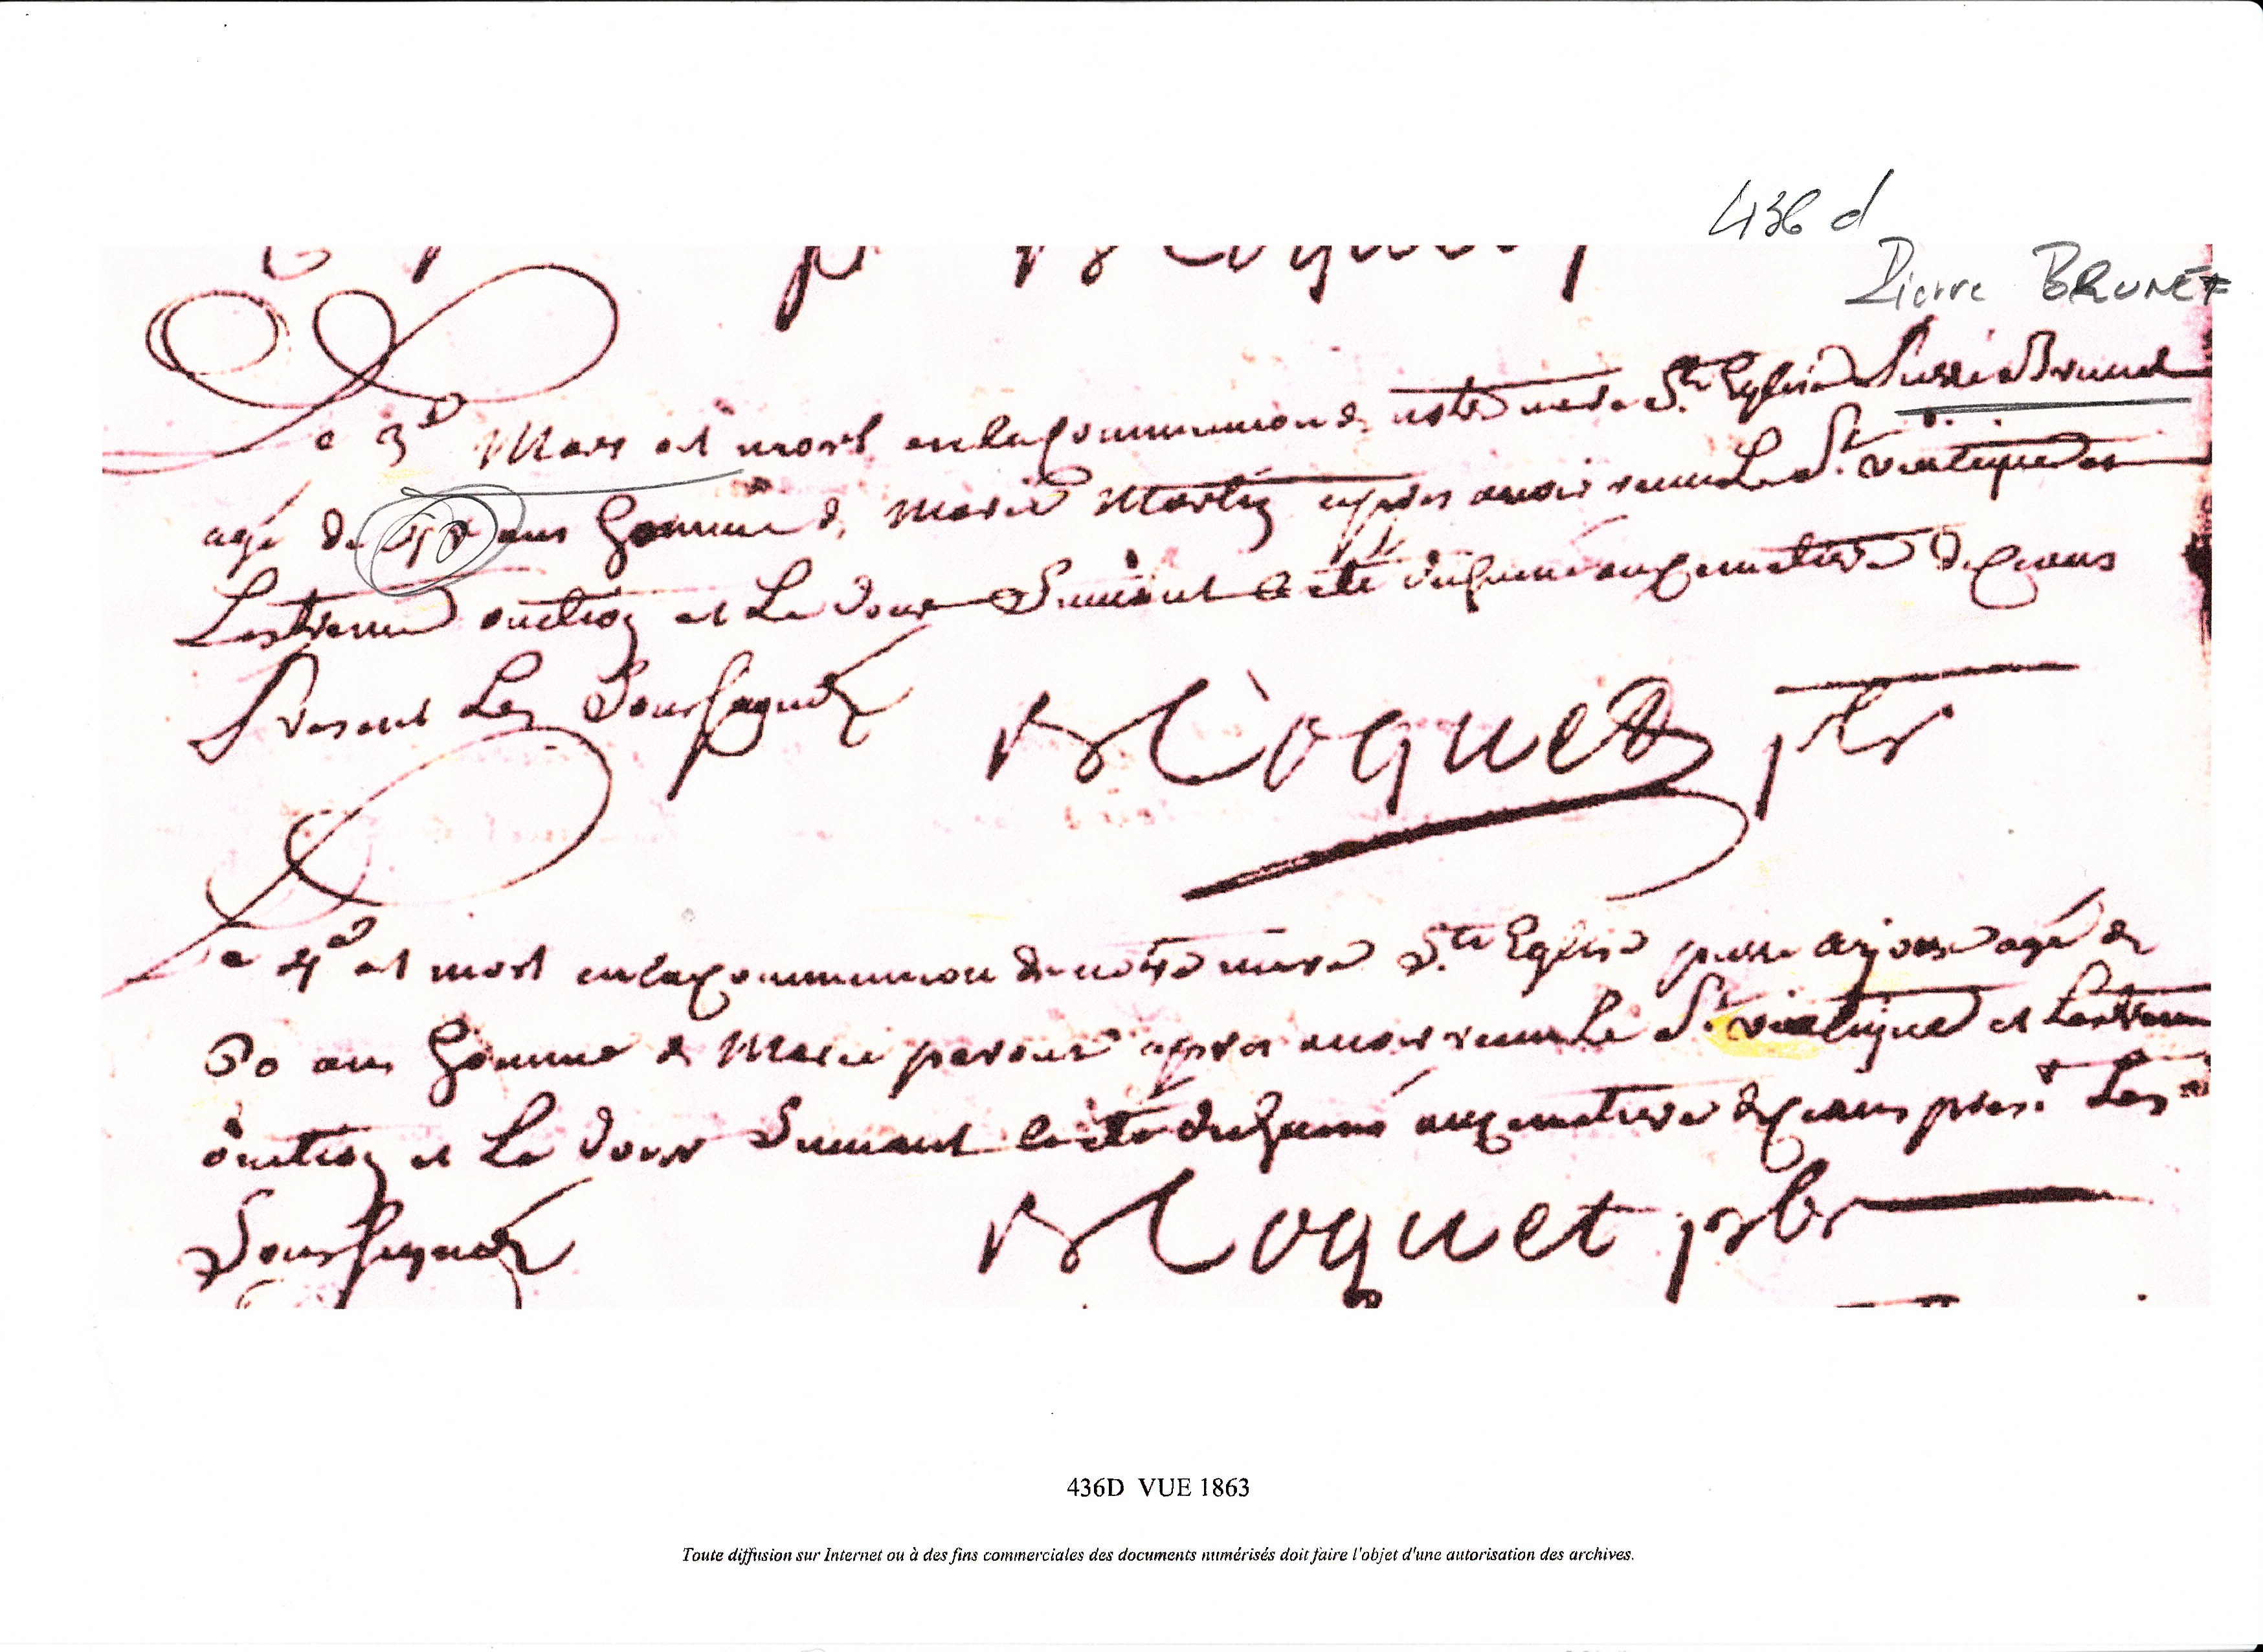 436 d
Pierre BRUNET
Le 3e Mars est mort en la communion de notre mere Ste Eglise Pierre Brunet
agé de ans homme de Marie Martin apres avoir receu Le St. viatique et
Lextreme onction et Le Jour Suivant a eté inhumé au cemetiere de ceans
Present Le Soussigné
Bloquet pbr
Le 4e est mort en la communion de notre mere Ste Eglise pierre agé de
60 ans homme de Marie apres avoir receu Le St. viatique et Lextreme
onction et Le Jour Suivant a eté inhumé au cemetiere de ceans prest. Le
Soussigné
Bloquet pbr
436D VUE 1863
Toute diffusion sur Internet ou à des fins commerciales des documents numérisés doit faire l'objet d'une autorisation des archives.